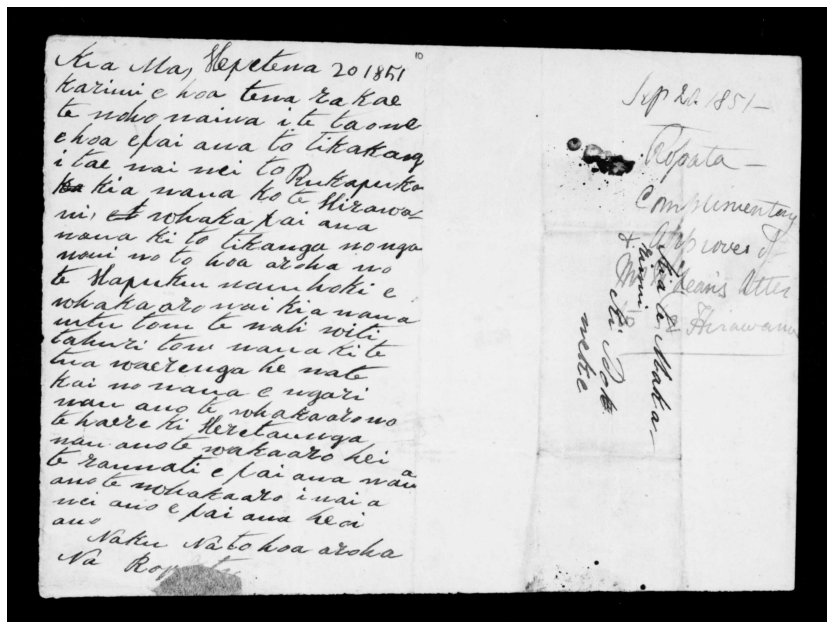 10
Kia Ma, Hepetema 20 1851
karimi e hoa tena ra koe
te noho naiwa i te taone
e hoa e pai ana to tikanga
i tae mai nei to Pukapuka
kia nana ko te Hirawa-
ni, whaka pai ana
nana ki to tikanga no nga
noui no to hoa aroha no
te Hapuku nau hoki e
whakaaro nai kia nana
tutu tonu te nati witi
tahuri tonu nana ki te
tua waerenga he nate
kai no nana e ngari
nau ano te whakaaro no
te haere ki Heretaunga
nau ano te wakaaro hei
te raunati e pai ana nau
ano te whakaaro i nai a
nei ano e pai ana heoi
ano
Naku Na to hoa aroha
Na Ropata
Sep 20. 1851 —
Ropata —
Complimentary
approves of
Mr McLeans letter
Hirawanu
Kia te Maka-
rini
Ki Pok
neke